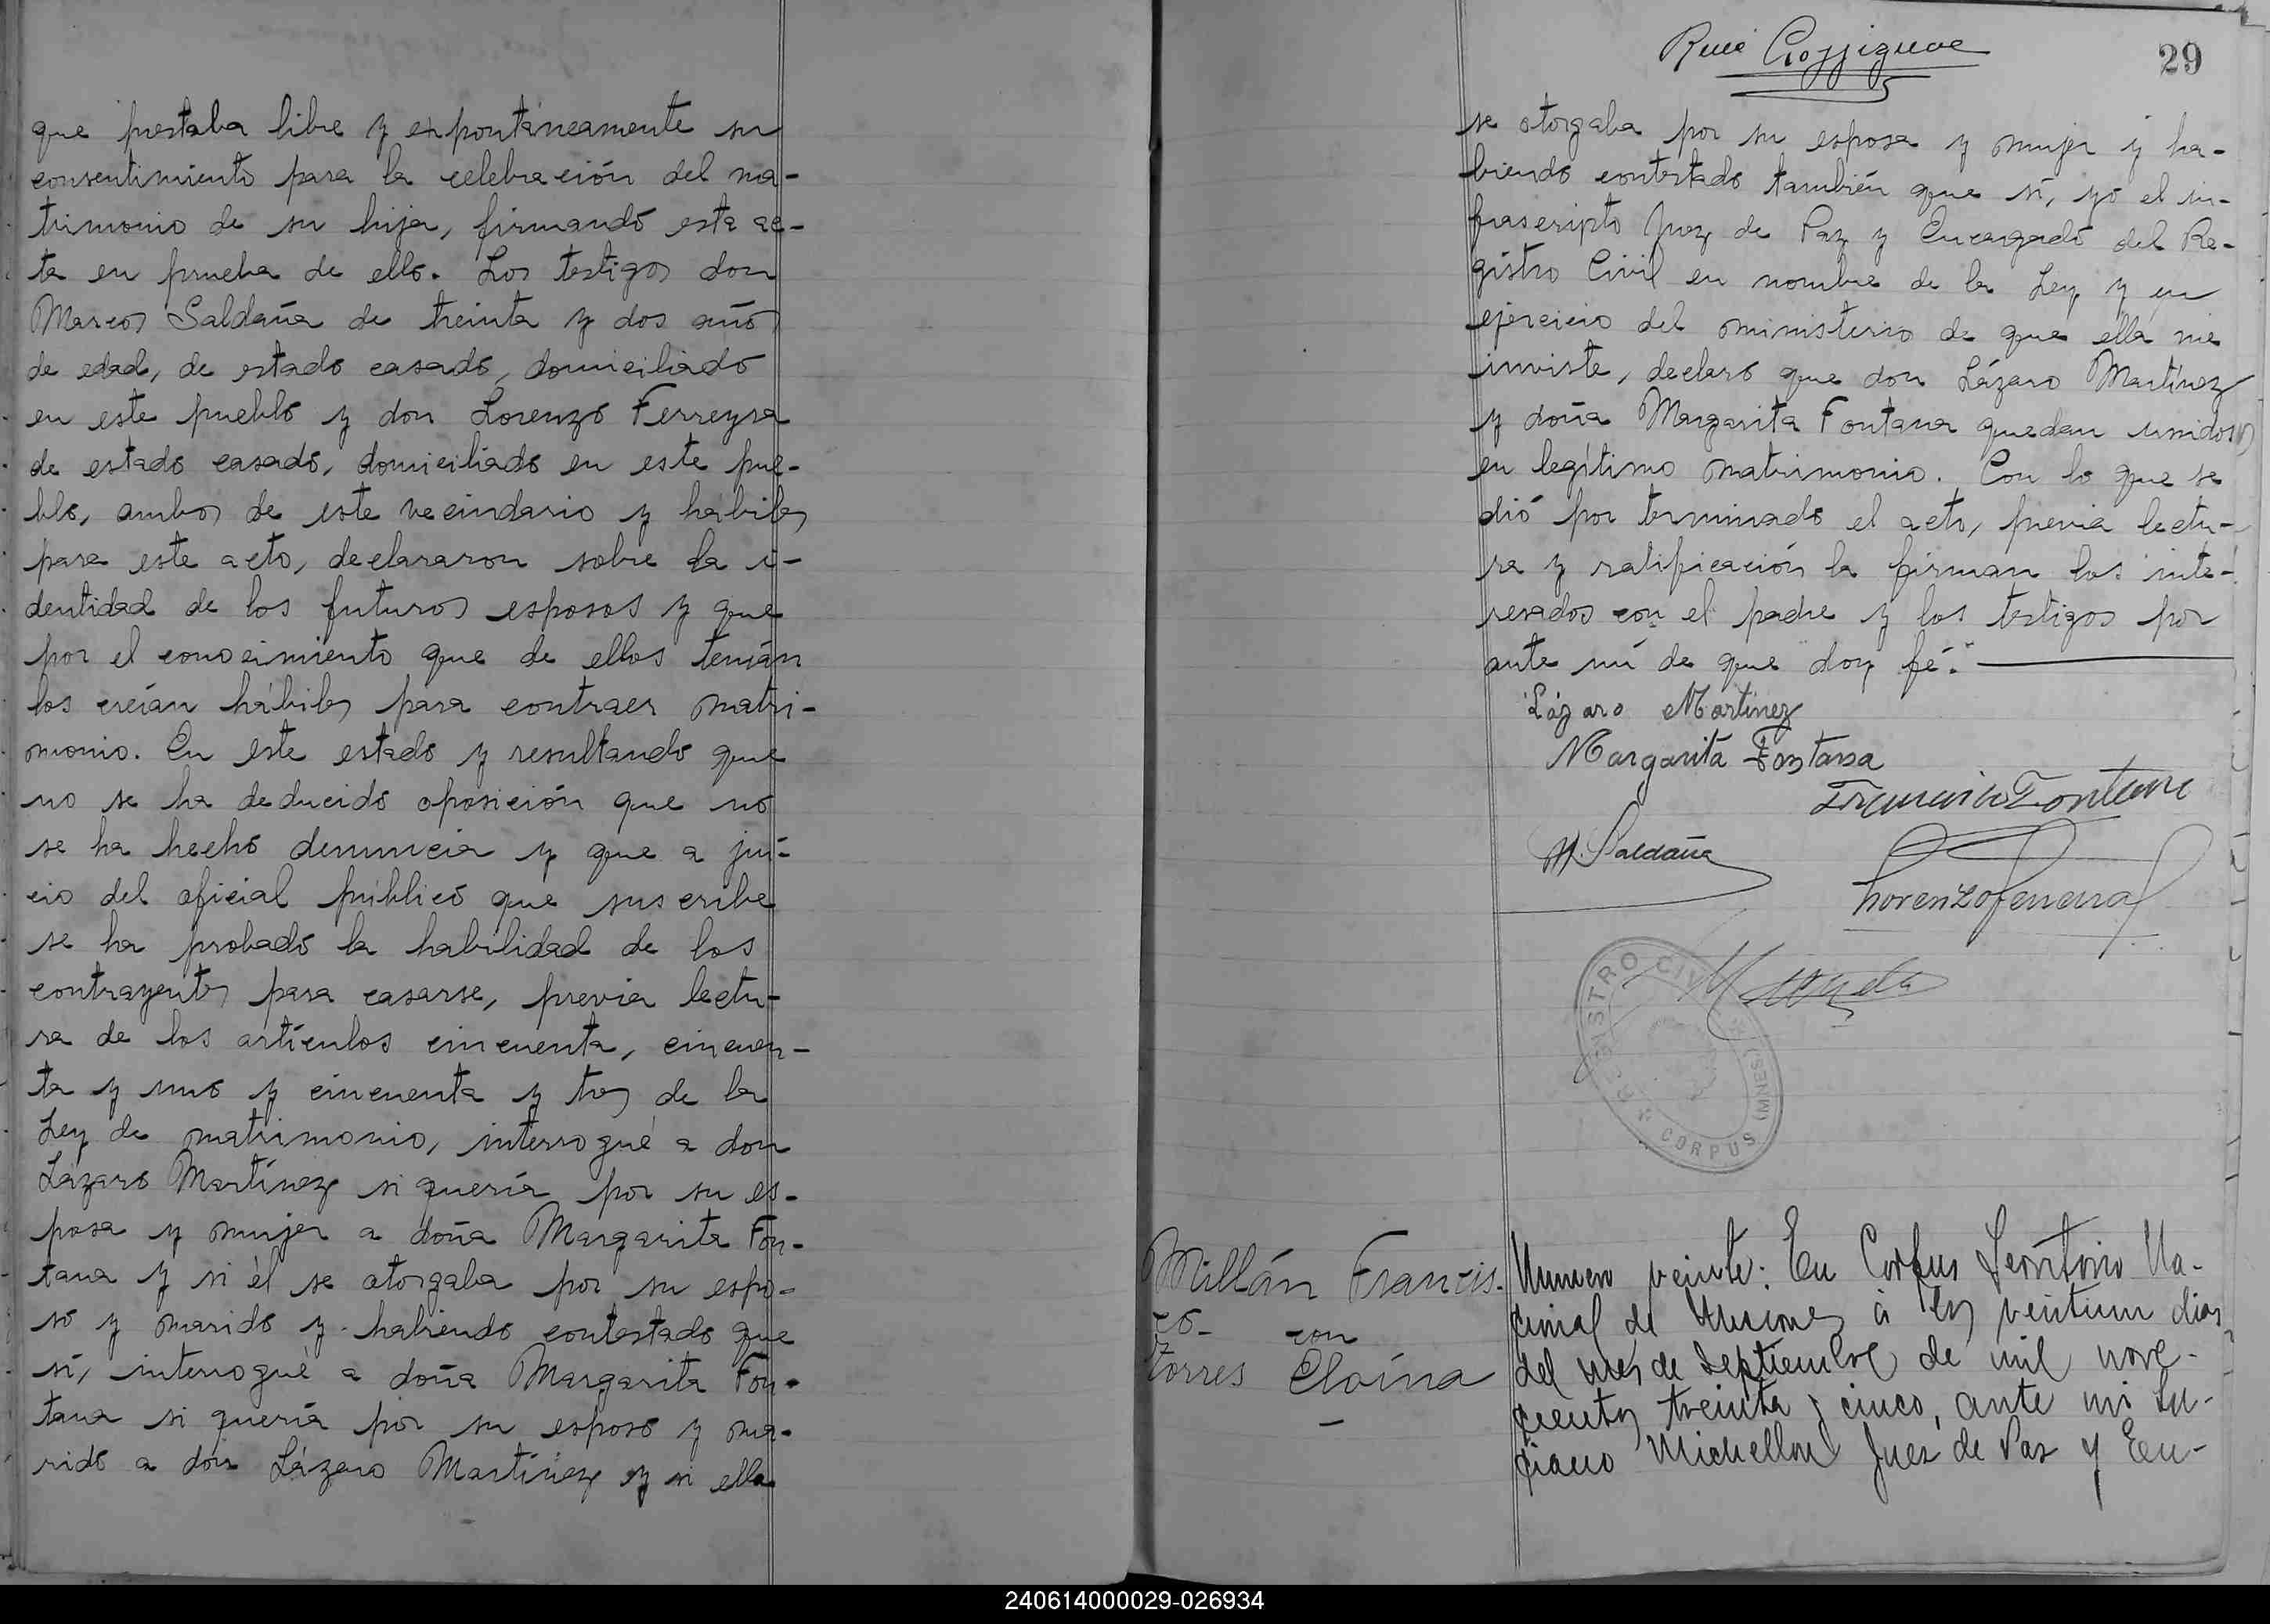 que prestaba libre y expontáneamente su
consentimiento para la celebración del ma-
trimonio de su hija, firmando esta ac-
ta en prueba de ello. Los testigos don
Marcos Saldaña de treinta y dos años
de edad, de estado casado, domiciliado
en este pueblo y don Lorenzo Ferreyra
de estado casado, domiciliado en este pue-
blo, ambos de este vecindario y hábiles
para este acto, declararon sobre la i-
dentidad de los futuros esposos y que
por el conocimiento que de ellos tenían
los creían hábiles para contraer matri-
monio. En este estado y resultando que
no se ha deducido oposición que no
se ha hecho denuncia y que a jui-
cio del oficial público que suscribe
se ha probado la habilidad de los
contrayentes para casarse, previa lectu-
ra de los artículos cincuenta, cincuen-
ta y uno y cincuenta y tres de la
Ley de matrimonio, interrogué a don
Lázaro Martínez si quería por su es-
posa y mujer a doña Margarita Fon-
tana y si él se otorgaba por su espo-
so y marido y habiendo contestado que
sí, interrogué a doña Margarita Fon-
tana si quería por su esposo y ma-
rido a don Lázaro Martínez y si ella
29
se otorgaba por su esposa y mujer y ha-
biendo contestado también que sí, yo el in-
frascripto Juez de Paz y Encargado del Re-
gistro Civil en nombre de la Ley y en
ejercicio del ministerio de que ella me
inviste, declaro que don Lázaro Martínez
y doña Margarita Fontana quedan unidos
en legítimo matrimonio. Con lo que se
dió por terminado el acto, previa lectu-
ra y ratificación la firman los inte-
resados con el padre y los testigos por
ante mí de que doy fé.
Lázaro Martinez
Margarita Fontana
Fontana
M. Saldaña
Lorenzo Ferreira
REGISTRO CIVIL
CORPUS (MNES)
Millán Francis-
co- con
Torres Eloína
Numero veinte: En Corpus Territorio Na-
cional de Misiones á los ventiun dias
del mes de Septiembre de mil nove-
cientos treinta y cinco, ante mi Lu-
ciano Michellon Juez de Paz y En-
240614000029-026934